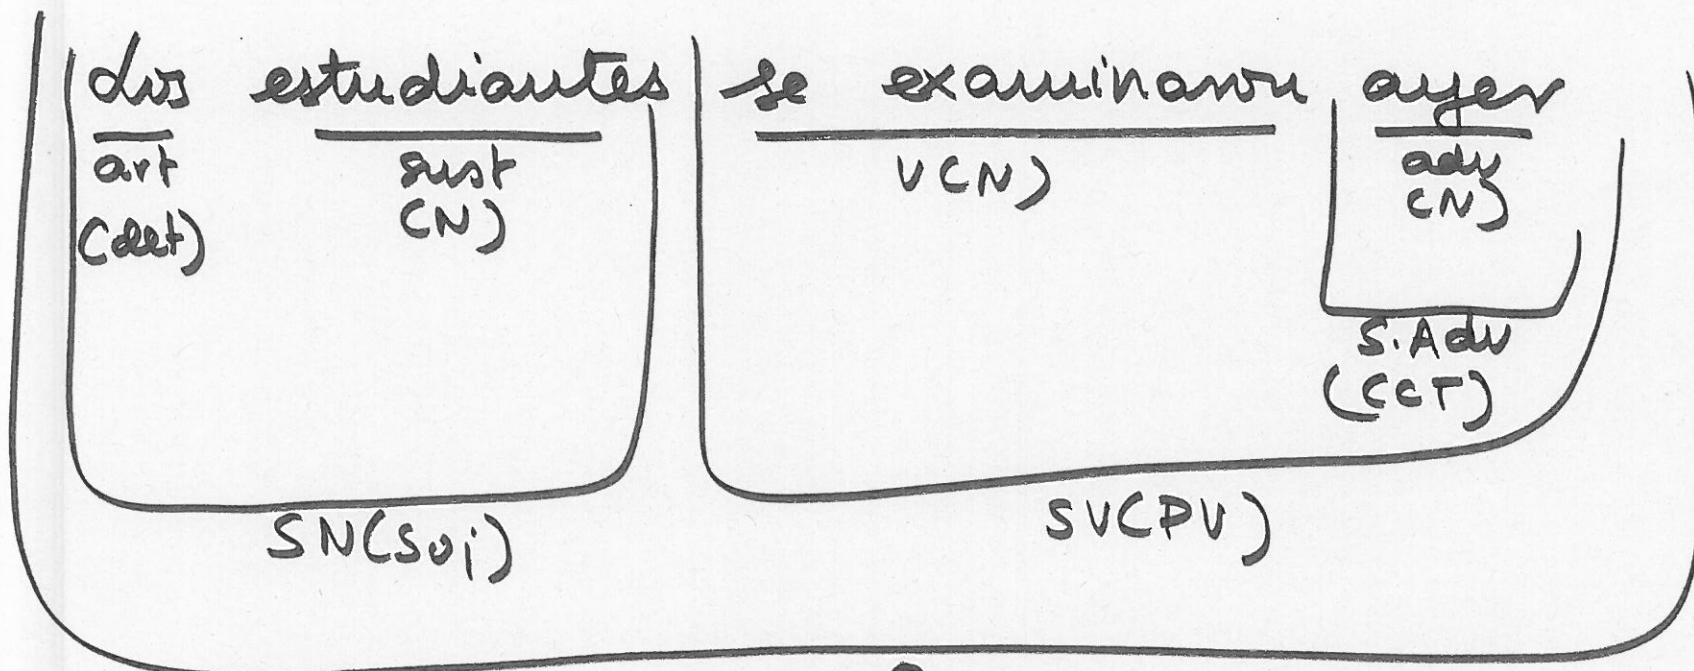 Los estudiantes se examinaron ayer
art sust V(N) adv
(det) (N) (N)
S.Adv
(CCT)
SN(Suj) SV(PV)